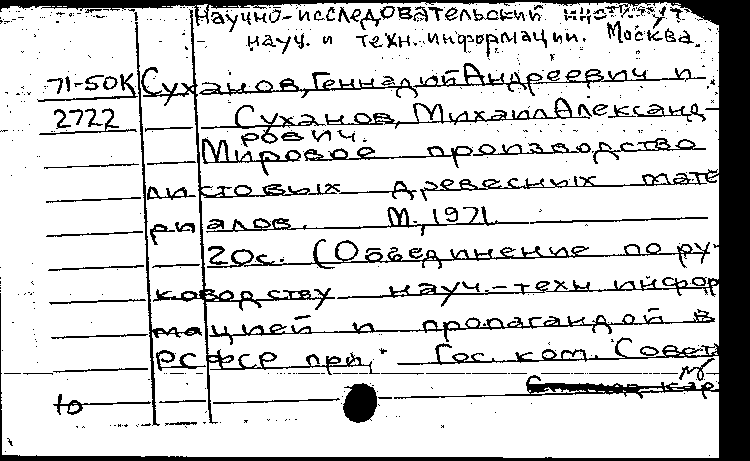 Научно-исследовательский институт
науч. и техн. информации. Москва.
71-50К Суханов, Геннадий Андреевич и
2722 Суханов, Михаил Александ-
рович.
Мировое производство
листовых древесных мате
риалов. М., 1971.
20с. (Объединение по ру-
ководству науч.-техн. инфор
мацией и пропагандой в
РСФСР при Гос. ком. Совет
to